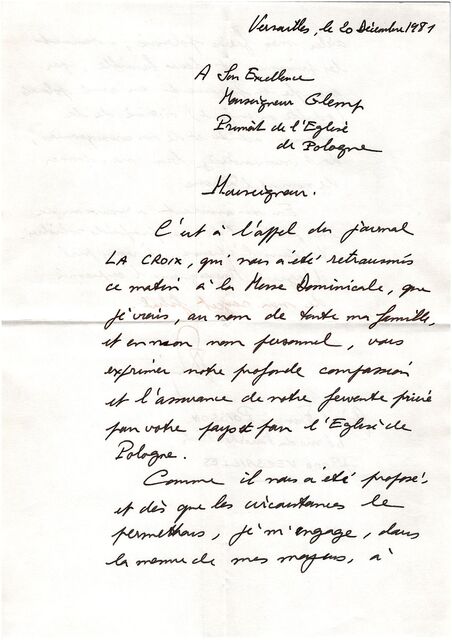 Versailles, le 20 Décembre 1981
A Son Excellence
Monseigneur Glemp
Primat de l'Eglise
de Pologne
Monseigneur.
C'est à l'appel du journal
LA CROIX, qui nous a été retransmis
ce matin à la Messe Dominicale, que
je viens, au nom de toute ma famille,
et en mon nom personnel, vous
exprimer notre profonde compassion
et l'assurance de notre fervente prière
pour votre pays et pour l'Eglise de
Pologne.
Comme il nous a été proposé,
et dès que les circonstances le
permettrons, je m'engage, dans
la mesure de mes moyens, à